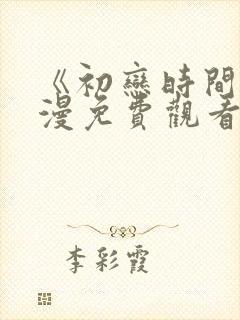 《初戀時間
漫免費觀看
李彩霞